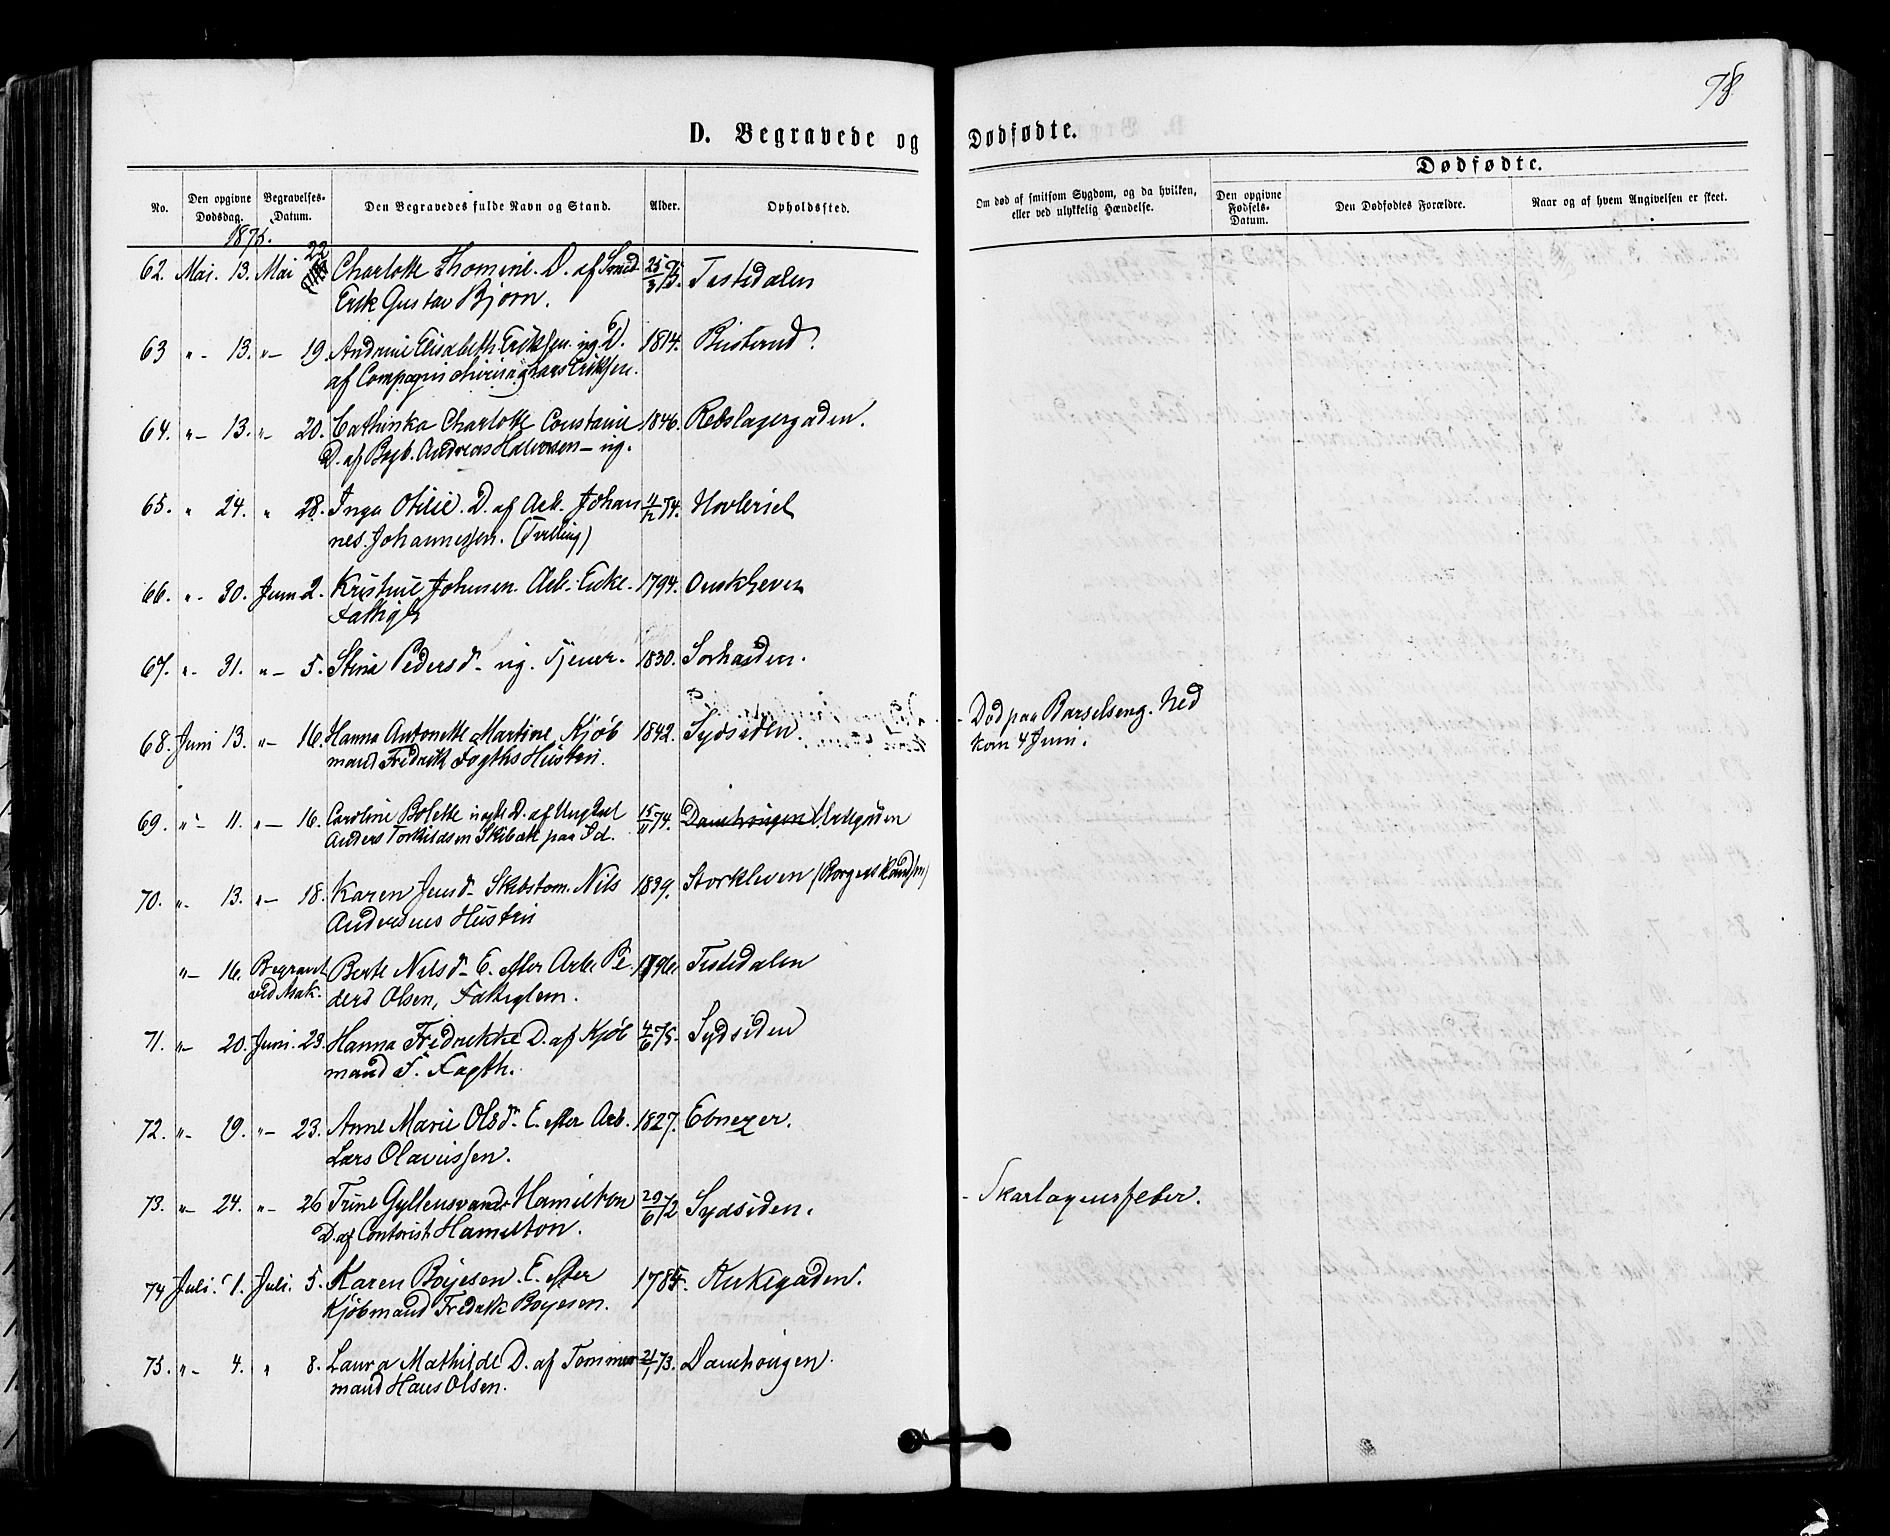 78
D. Begravede og Dødfødte.
Dødfødte.
No.
Den opgivne Dødsdag.
Begravelses-Datum.
Den Begravedes fulde Navn og Stand.
Alder.
Opholdssted.
Om død af smitsom Sygdom, og da hvilken, eller ved ulykkelig Hændelse.
Den opgivne Fødsels-Datum.
Den Dødfødtes Forældre.
Naar og af hvem Angivelsen er skeet.
1875.
62. Mai. 13. Mai 22 Charlotte Thomine. D. af Smed 25/3 75. Tistedalen
Erik Gustav Bjørn.
63 " - 13. " - 19. Andrine Elisabeth Eriksen ug. D. 1814. Risterud.
af Hans Eriksen.
64. " - 13. " - 20. Cathinka Charlotte Constanse 1846. Rebslagergaden.
D. af Bogb. Andreas Halvorsen - ug.
65. " 24. " 28. Inga Otilie. D. af Arb. Johan 11/12 74. Hovleriet
nes Johannessen. (Tvilling)
66. " - 30. Juni 2. Kristine Johnsen. Arb. Enke. 1794. Ouskleven
Fattigl.
67. " - 31. " - 5. Stina Pedersd. ug. Tjener. 1830. Sorhalden.
68. Juni 13. " - 16. Hanna Antonette Martine Kjøb 1842. Sydsiden. - Død paa Barselseng. Ned
mand Fredrik Fogths Hustru. kom 4 Juni.
69. " - 11. " - 16. Caroline Bolette uægte D. af Ungkarl 15/11 74. Damhougen
Anders Torkildsen Skibæk paa Id.
70. " - 13. " - 18. Karen Jensd. Skibstøm. Nils 1839. Storkleven
Andersens Hustru
" - 16. Begravt Berte Nilsd. E. efter Arb. Pe 1796. Tistedalen
ved Asak. ders Olsen, Fattiglem.
71. " - 20. Juni. 23. Hanna Fredrikke D. af Kjøb 4/6 75. Sydsiden
mand F. Fogth.
72. " - 19. " - 23. Anne Marie Olsdr. E. efter Arb. 1827. Ebnezer.
Lars Olavissen.
73. " - 24. " - 26 Trine Gyllensvands Hamilton 29/6 72 Sydsiden. - Skarlagensfeber.
D. af Contorist Hamilton.
74 Juli. 1. Juli. 5. Karen Boyesen. E. efter 1785. Kirkegaden.
Kjøbmand Fredrik Boyesen.
75. " - 4. " 8. Laura Mathilde D. af Tømmer 21/1 73. Damhougen.
mand Hans Olsen.